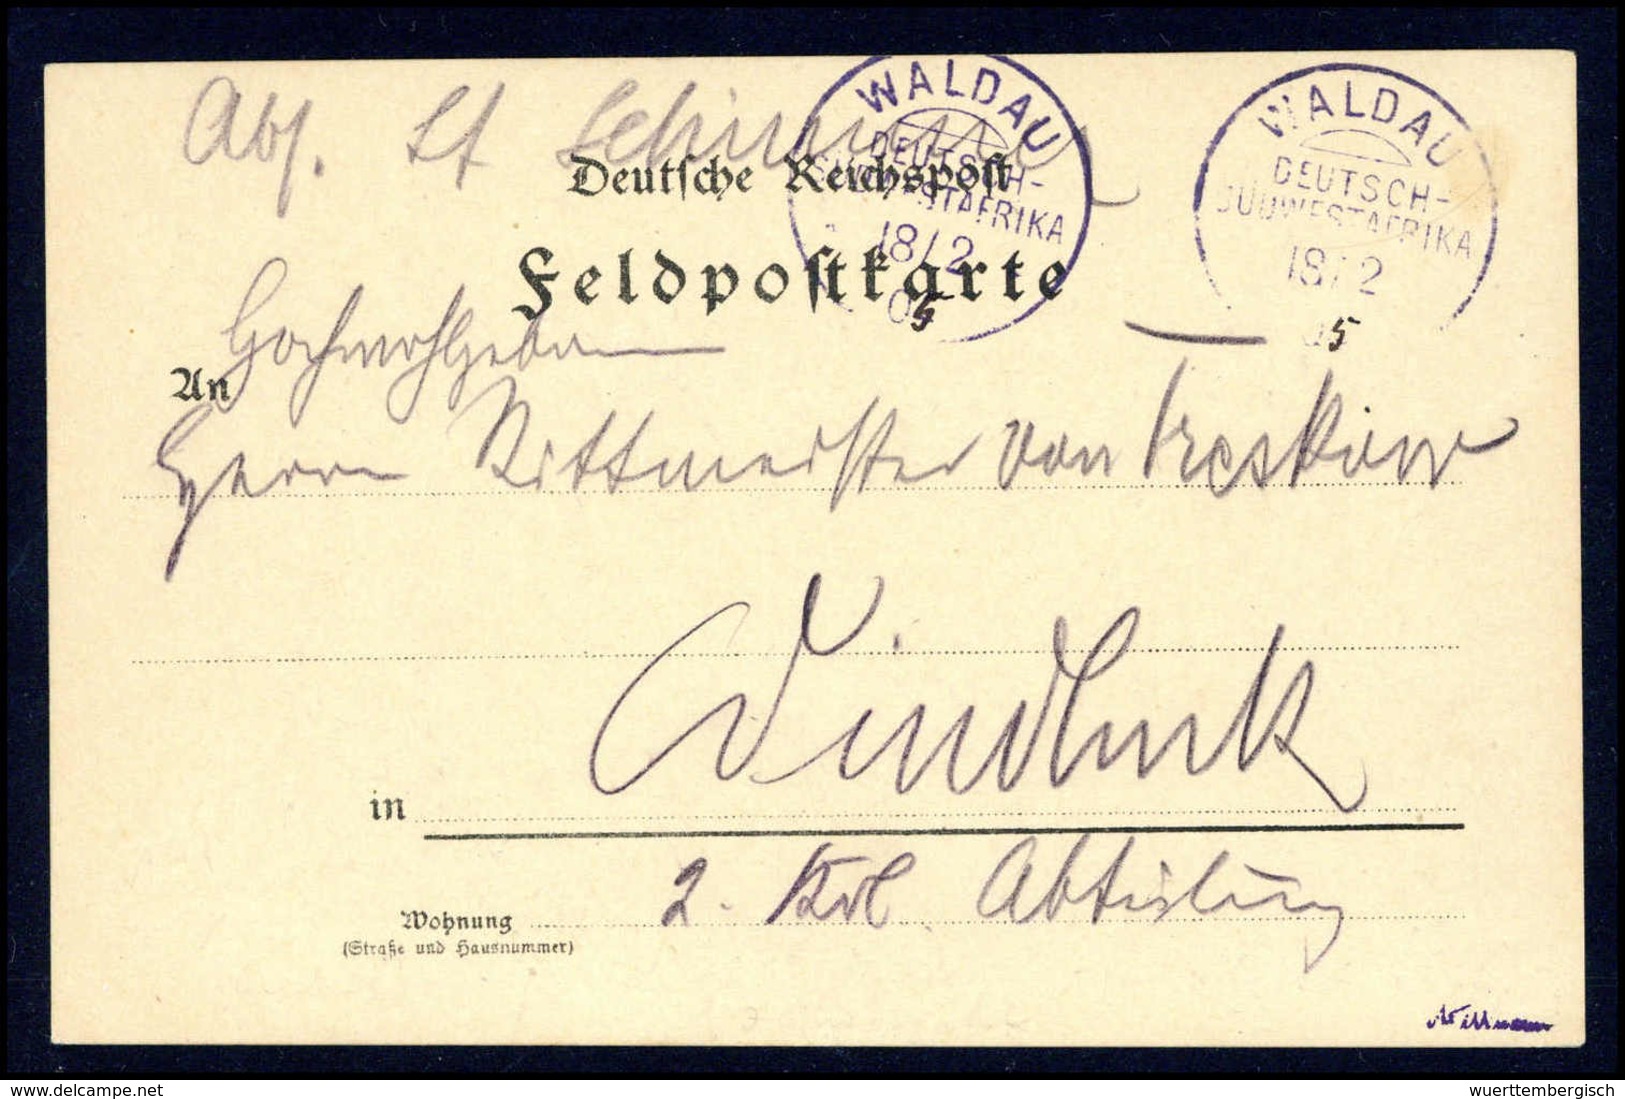 Abs. Lt
WALDAU
DEUTSCH-
SÜDWESTAFRIKA
18/2
05
WALDAU
DEUTSCH-
SÜDWESTAFRIKA
18/2
05
Deutsche Reichspost
Feldpostkarte
Hochwohlgeboren
An
Herrn Rittmeister von Treskow
in Windhuk
Wohnung 2. Abteilung
(Straße und Hausnummer)
© www.delcampe.net
wuerttembergisch